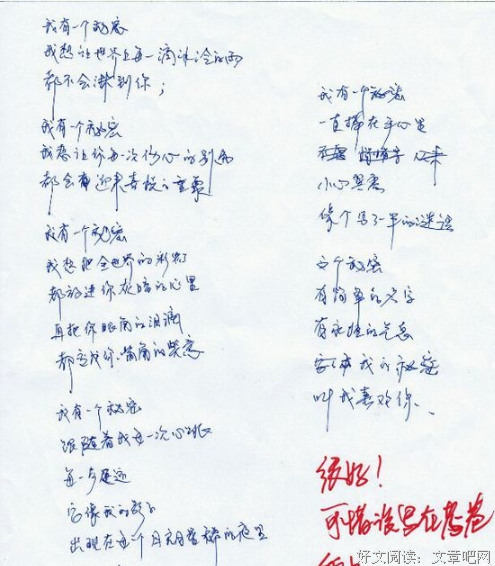 我有一个秘密
我想让世界上每一滴冰冷的雨
都不会淋到你；
我有一个秘密
我想让你每一次伤心的别离
都会有迎来喜悦的重聚
我有一个秘密
我想把全世界的彩虹
都放进你灰暗的心里
再把你眼角的泪滴
都变成你嘴角的笑意
我有一个秘密
跟随着我每一次心跳
每一步足迹
它像我的影子
出现在每个月亮的夜里
我有一个秘密
一直捧在手心里
小心翼翼
像个写了一半的谜语
这个秘密
有简单的名字
有永恒的气息
我的秘密
叫我喜欢你.
很好！
可惜误写在答卷
好文阅读：文章吧网